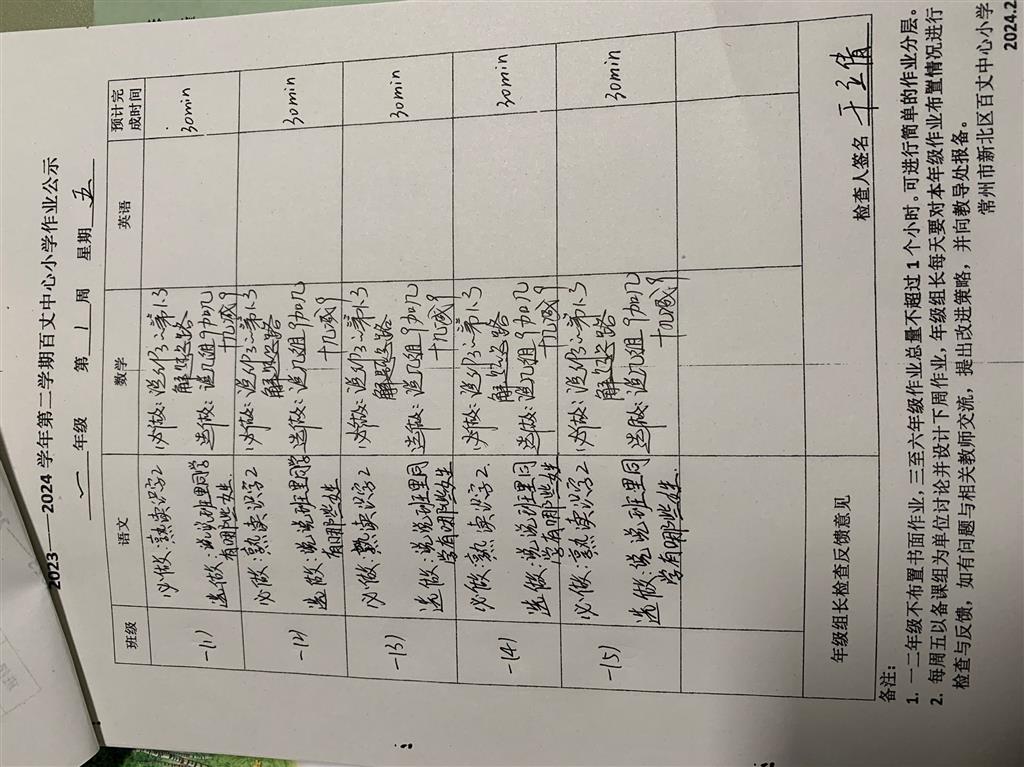 2023——2024 学年第二学期百丈中心小学作业公示
一 年级 第 1 周 星期 五
班级 语文 数学 英语 预计完成时间
一(1) 必做:熟读识字2 必做: 30min
选做:说说班里同学有哪些姓 选做:说几组9加几 十几减9
一(2) 必做:熟读识字2 必做: 30min
选做:说说班里同学有哪些姓 选做:说几组9加几 十几减9
一(3) 必做:熟读识字2 必做: 30min
选做:说说班里同学有哪些姓 选做:说几组9加几 十几减9
一(4) 必做:熟读识字2 必做: 30min
选做:说说班里同学有哪些姓 选做:说几组9加几 十几减9
一(5) 必做:熟读识字2 必做: 30min
选做:说说班里同学有哪些姓 选做:说几组9加几 十几减9
年级组长检查反馈意见 检查人签名
备注:
1. 一二年级不布置书面作业,三至六年级作业总量不超过 1 个小时。可进行简单的作业分层。
2. 每周五以备课组为单位讨论并设计下周作业,年级组长每天要对本年级作业布置情况进行
检查与反馈,如有问题与相关教师交流,提出改进策略,并向教导处报备。
常州市新北区百丈中心小学
2024.2